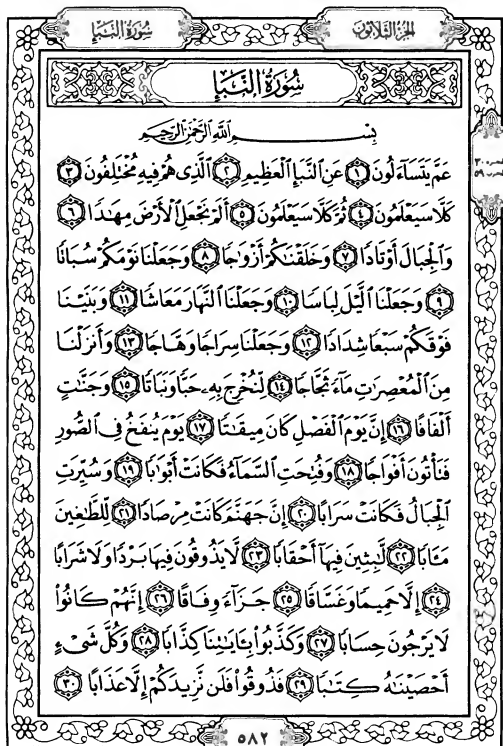 سُورَةُ النَّبَإِ
الجُزْءُ الثَّلَاثُونَ
سُورَةُ النَّبَإِ
بِسْمِ ٱللَّهِ ٱلرَّحْمَٰنِ ٱلرَّحِيمِ
عَمَّ يَتَسَآءَلُونَ ١ عَنِ ٱلنَّبَإِ ٱلْعَظِيمِ ٢ ٱلَّذِى هُمْ فِيهِ مُخْتَلِفُونَ ٣
كَلَّا سَيَعْلَمُونَ ٤ ثُمَّ كَلَّا سَيَعْلَمُونَ ٥ أَلَمْ نَجْعَلِ ٱلْأَرْضَ مِهَٰدًا ٦
وَٱلْجِبَالَ أَوْتَادًا ٧ وَخَلَقْنَٰكُمْ أَزْوَٰجًا ٨ وَجَعَلْنَا نَوْمَكُمْ سُبَاتًا
٩ وَجَعَلْنَا ٱلَّيْلَ لِبَاسًا ١٠ وَجَعَلْنَا ٱلنَّهَارَ مَعَاشًا ١١ وَبَنَيْنَا
فَوْقَكُمْ سَبْعًا شِدَادًا ١٢ وَجَعَلْنَا سِرَاجًا وَهَّاجًا ١٣ وَأَنزَلْنَا
مِنَ ٱلْمُعْصِرَٰتِ مَآءً ثَجَّاجًا ١٤ لِّنُخْرِجَ بِهِۦ حَبًّا وَنَبَاتًا ١٥ وَجَنَّٰتٍ
أَلْفَافًا ١٦ إِنَّ يَوْمَ ٱلْفَصْلِ كَانَ مِيقَٰتًا ١٧ يَوْمَ يُنفَخُ فِى ٱلصُّورِ
فَتَأْتُونَ أَفْوَاجًا ١٨ وَفُتِحَتِ ٱلسَّمَآءُ فَكَانَتْ أَبْوَٰبًا ١٩ وَسُيِّرَتِ
ٱلْجِبَالُ فَكَانَتْ سَرَابًا ٢٠ إِنَّ جَهَنَّمَ كَانَتْ مِرْصَادًا ٢١ لِّلطَّٰغِينَ
مَـَٔابًا ٢٢ لَّٰبِثِينَ فِيهَآ أَحْقَابًا ٢٣ لَّا يَذُوقُونَ فِيهَا بَرْدًا وَلَا شَرَابًا
٢٤ إِلَّا حَمِيمًا وَغَسَّاقًا ٢٥ جَزَآءً وِفَاقًا ٢٦ إِنَّهُمْ كَانُوا۟
لَا يَرْجُونَ حِسَابًا ٢٧ وَكَذَّبُوا۟ بِـَٔايَٰتِنَا كِذَّابًا ٢٨ وَكُلَّ شَىْءٍ
أَحْصَيْنَٰهُ كِتَٰبًا ٢٩ فَذُوقُوا۟ فَلَن نَّزِيدَكُمْ إِلَّا عَذَابًا ٣٠
٥٨٢